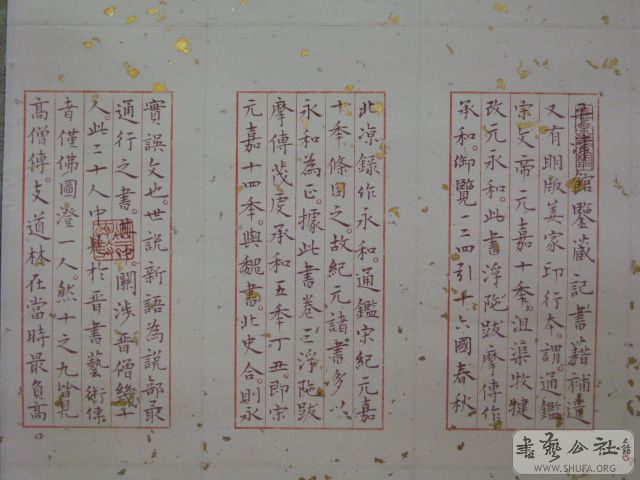 平津館鑒藏記書藉補遺
又有明版美家印行本。謂通鑑
宋文帝元嘉十秊。沮渠牧犍
改元永和。此書浮陁跋摩傳作
承和。御覽一二四引十六國春秋
北凉錄作永和。通鑑宋紀元嘉
十秊條因之。故紀元諸書多以
永和為正。據此書卷三浮陁跋
摩傳茂虔承和五秊丁丑。即宋
元嘉十四秊。與魏書。北史合。則永
實誤文也。世說新語為說部最
通行之書。其中關涉晉僧幾十
人。此二十人中見於晉書藝術傳
者僅佛圖澄一人。然十之九皆見
高僧傳。支道林在當時最負高
書藝公社
WWW.SHUFA.ORG